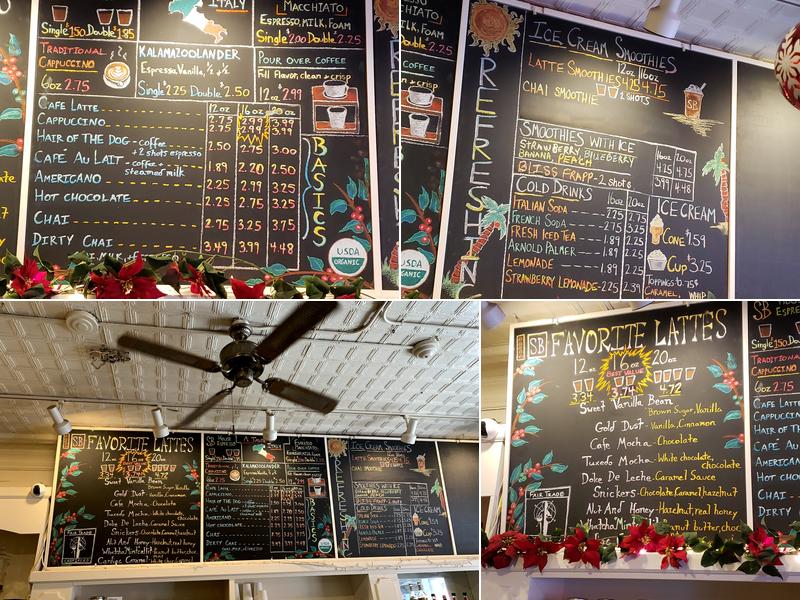 ITALY
MACCHIATO
ESPRESSO, MILK, FOAM
Single $2.00 Double $2.25
Single $1.50 Double $1.85
TRADITIONAL
CAPPUCCINO
6oz 2.75
KALAMAZOOLANDER
Espresso, Vanilla, ½ & ½
Single $2.25 Double $2.50
POUR OVER COFFEE
Full flavor, clean & crisp
12oz $2.99
12oz 16oz 20oz
CAFE LATTE 2.75 2.99 3.99
CAPPUCCINO 2.75 2.99 3.99
HAIR OF THE DOG - coffee + 2 shots espresso 2.50 2.75 3.00
CAFÉ AU LAIT - coffee + steamed milk 1.89 2.20 2.50
AMERICANO 2.25 2.25 2.50
HOT CHOCOLATE 2.25 2.75 3.25
CHAI 2.75 3.25 3.75
DIRTY CHAI 3.49 3.99 4.48
BASICS
USDA
ORGANIC
REFRESHING
ICE CREAM SMOOTHIES
12oz 16oz
LATTE SMOOTHIES 4.25 4.75
CHAI SMOOTHIE 2 SHOTS
SB
SMOOTHIES WITH ICE
STRAWBERRY, BLUEBERRY
BANANA, PEACH
16oz 20oz
4.25 4.75
BLISS FRAPP - 2 shots 3.99 4.48
COLD DRINKS 16oz 20oz
ITALIAN SODA 2.25 2.75
FRENCH SODA 2.75 3.25
FRESH ICED TEA 1.89 2.25
ARNOLD PALMER 1.89 2.25
LEMONADE 1.89 2.25
STRAWBERRY LEMONADE 2.25 2.39
ICE CREAM
Cone $1.59
Cup $3.25
TOPPINGS - 0.75¢
CARAMEL, WHIP
FAVORITE LATTES
SB FAVORITE LATTES
12oz 16oz 20oz
BEST VALUE
3.34 3.74 4.72
Sweet Vanilla Bean
Brown Sugar, Vanilla
Gold Dust - Vanilla, Cinnamon
Cafe Mocha - Chocolate
Tuxedo Mocha - White chocolate, chocolate
Dulce De Leche - Caramel Sauce
Snickers - Chocolate, Caramel, hazelnut
Nut And Honey - Hazelnut, real honey
FAIR TRADE